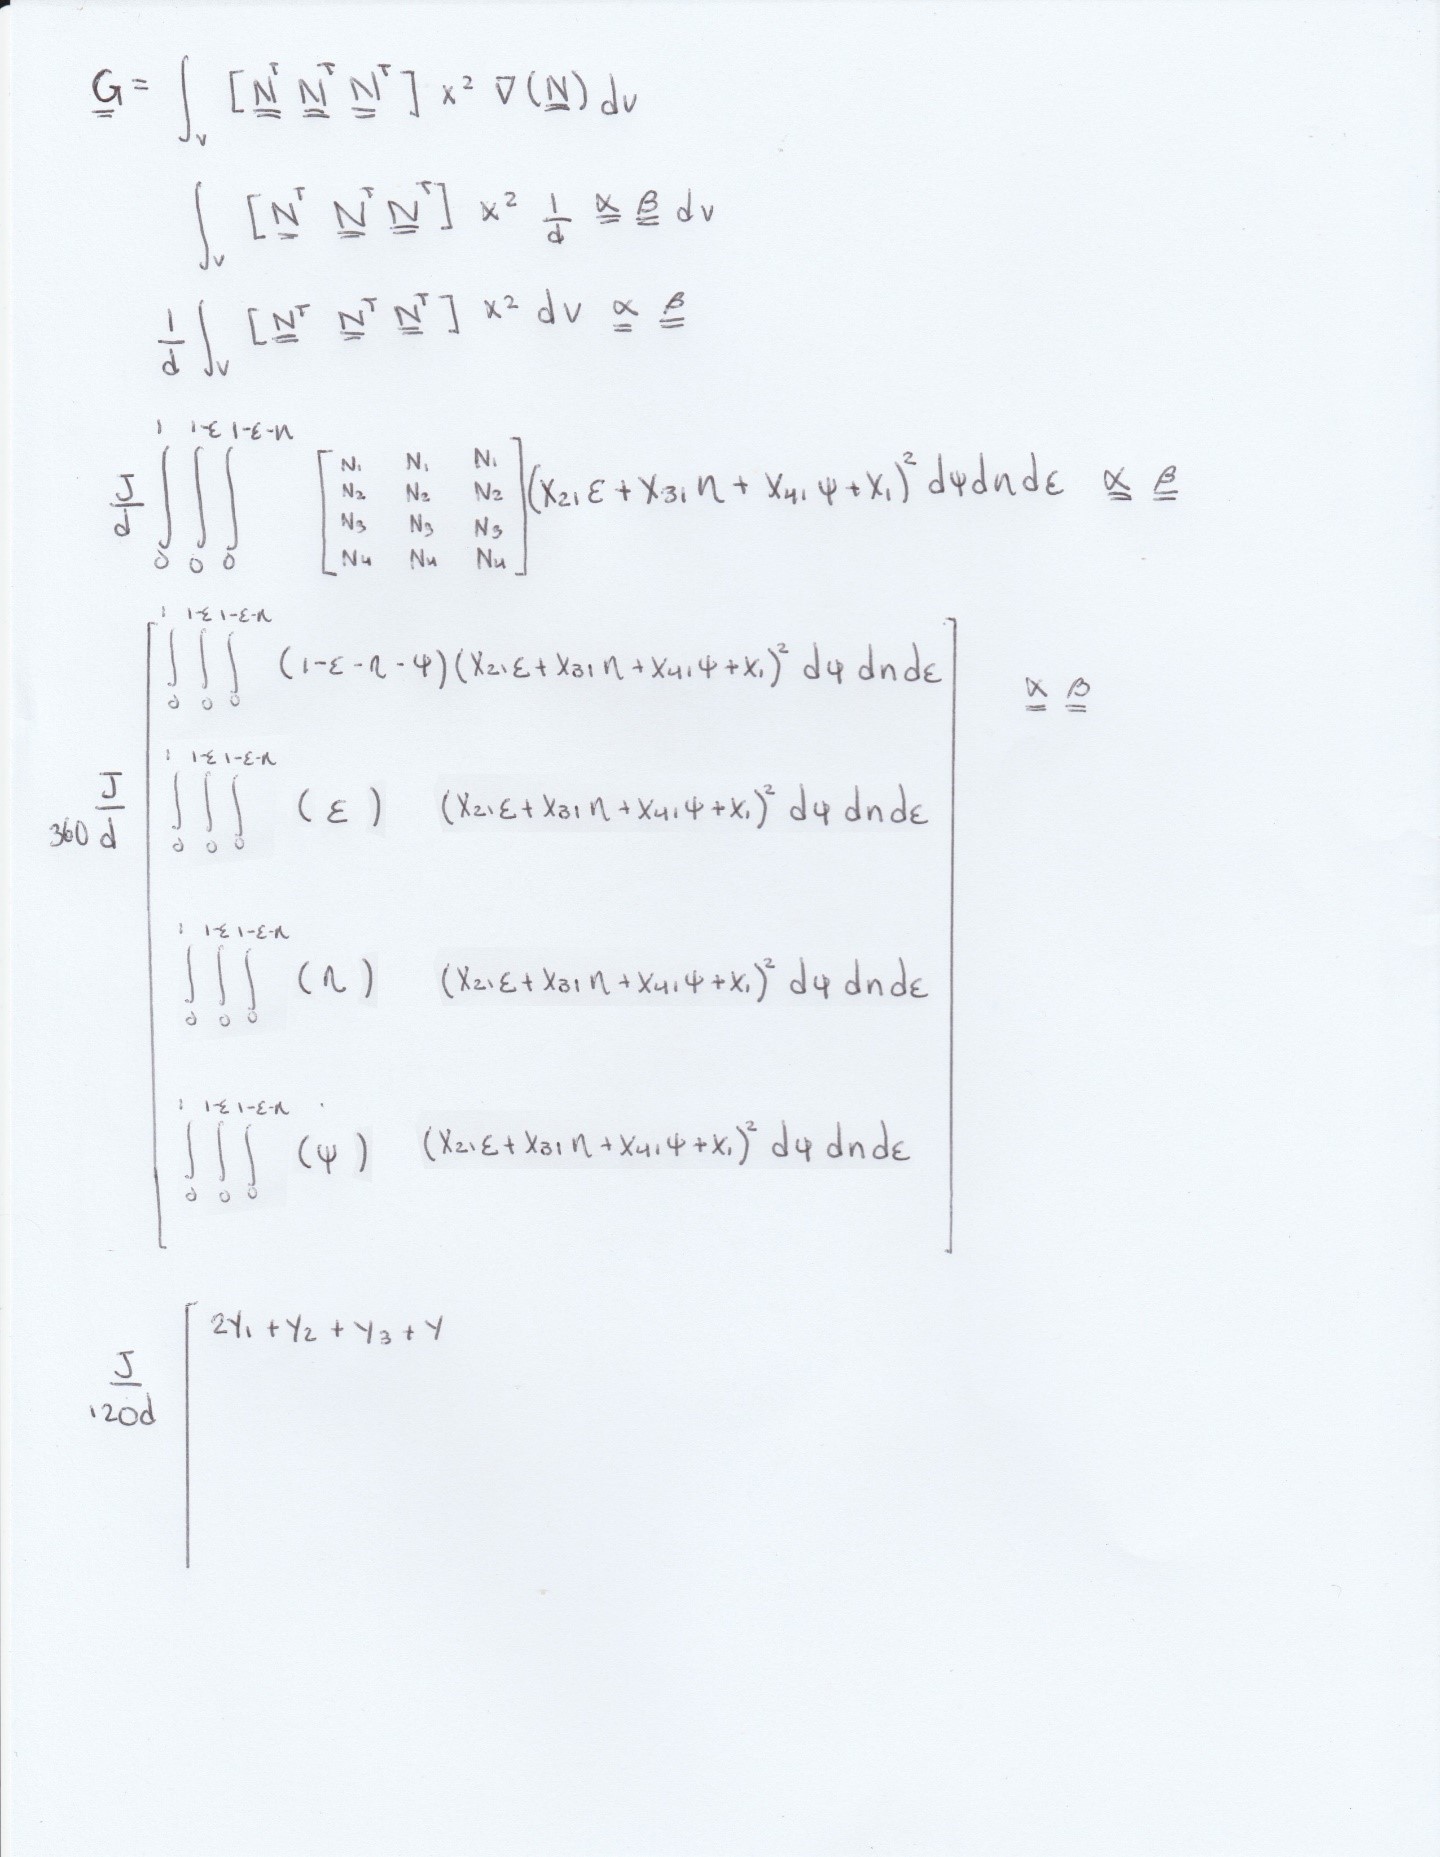 G = ∫_V [N^T N^T N^T] x² ∇(N) dv
∫_V [N^T N^T N^T] x² 1/d α β dv
1/d ∫_V [N^T N^T N^T] x² dv α β
J/d ∫_0^1 ∫_0^{1-ε} ∫_0^{1-ε-η} [N₁ N₁ N₁; N₂ N₂ N₂; N₃ N₃ N₃; N₄ N₄ N₄] (X₂₁ε + X₃₁η + X₄₁ψ + X₁)² dψ dη dε α β
∫_0^1 ∫_0^{1-ε} ∫_0^{1-ε-η} (1-ε-η-ψ) (X₂₁ε + X₃₁η + X₄₁ψ + X₁)² dψ dη dε α β
360 J/d ∫_0^1 ∫_0^{1-ε} ∫_0^{1-ε-η} (ε) (X₂₁ε + X₃₁η + X₄₁ψ + X₁)² dψ dη dε
∫_0^1 ∫_0^{1-ε} ∫_0^{1-ε-η} (η) (X₂₁ε + X₃₁η + X₄₁ψ + X₁)² dψ dη dε
∫_0^1 ∫_0^{1-ε} ∫_0^{1-ε-η} (ψ) (X₂₁ε + X₃₁η + X₄₁ψ + X₁)² dψ dη dε
J/120d [ 2Y₁ + Y₂ + Y₃ + Y